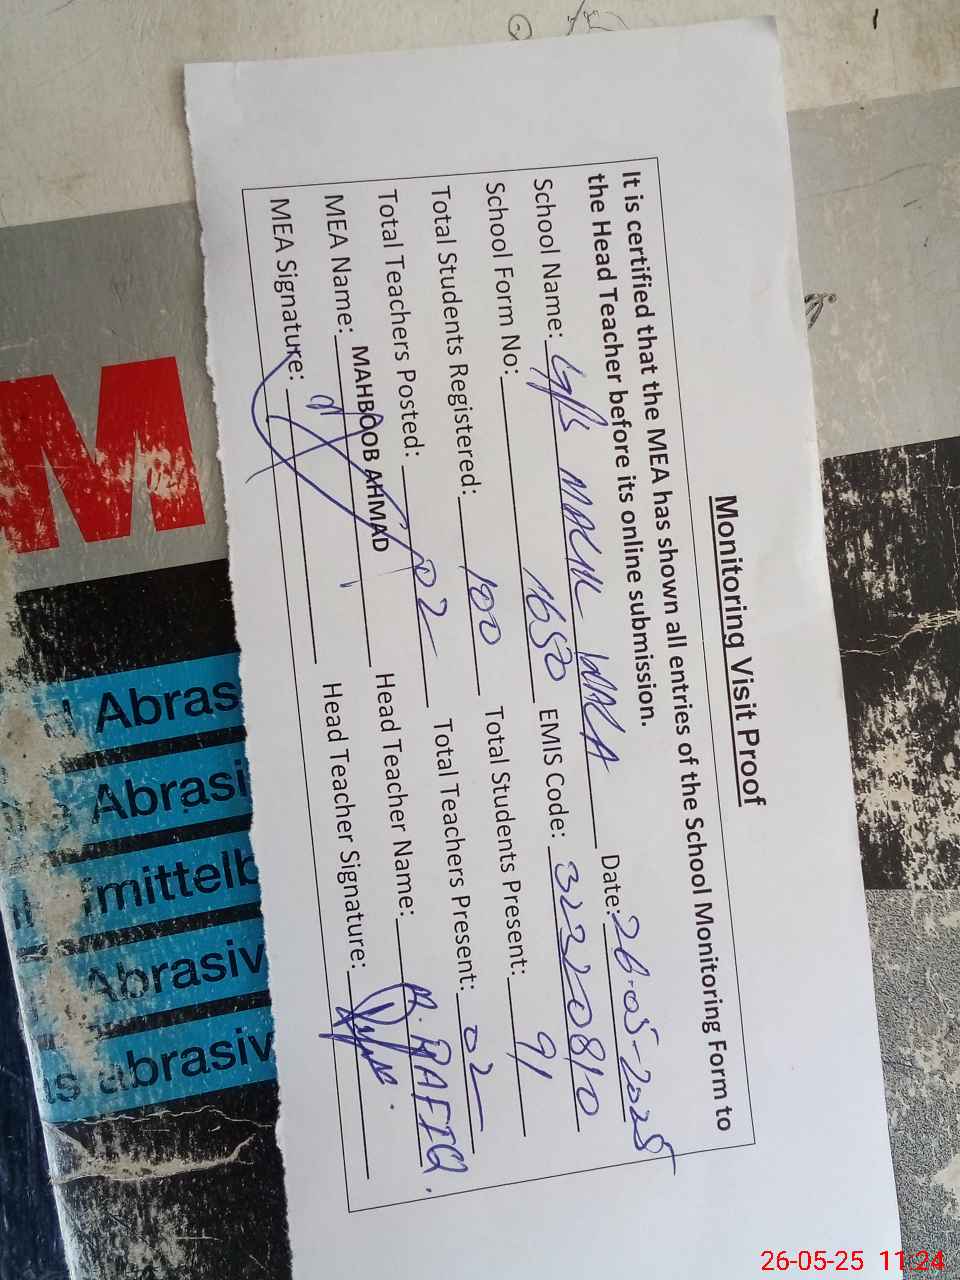 Monitoring Visit Proof
It is certified that the MEA has shown all entries of the School Monitoring Form to
the Head Teacher before its online submission.
School Name: G/S MALIK WALA Date: 26-05-2025
School Form No: 1650 EMIS Code: 32320810
Total Students Registered: 100 Total Students Present: 91
Total Teachers Posted: 02 Total Teachers Present: 02
MEA Name: MAHBOOB AHMAD Head Teacher Name: A. RAFIQ.
MEA Signature: Head Teacher Signature:
M
Abras
Abrasi
mittelb
Abrasiv
s abrasiv
26-05-25 11:24